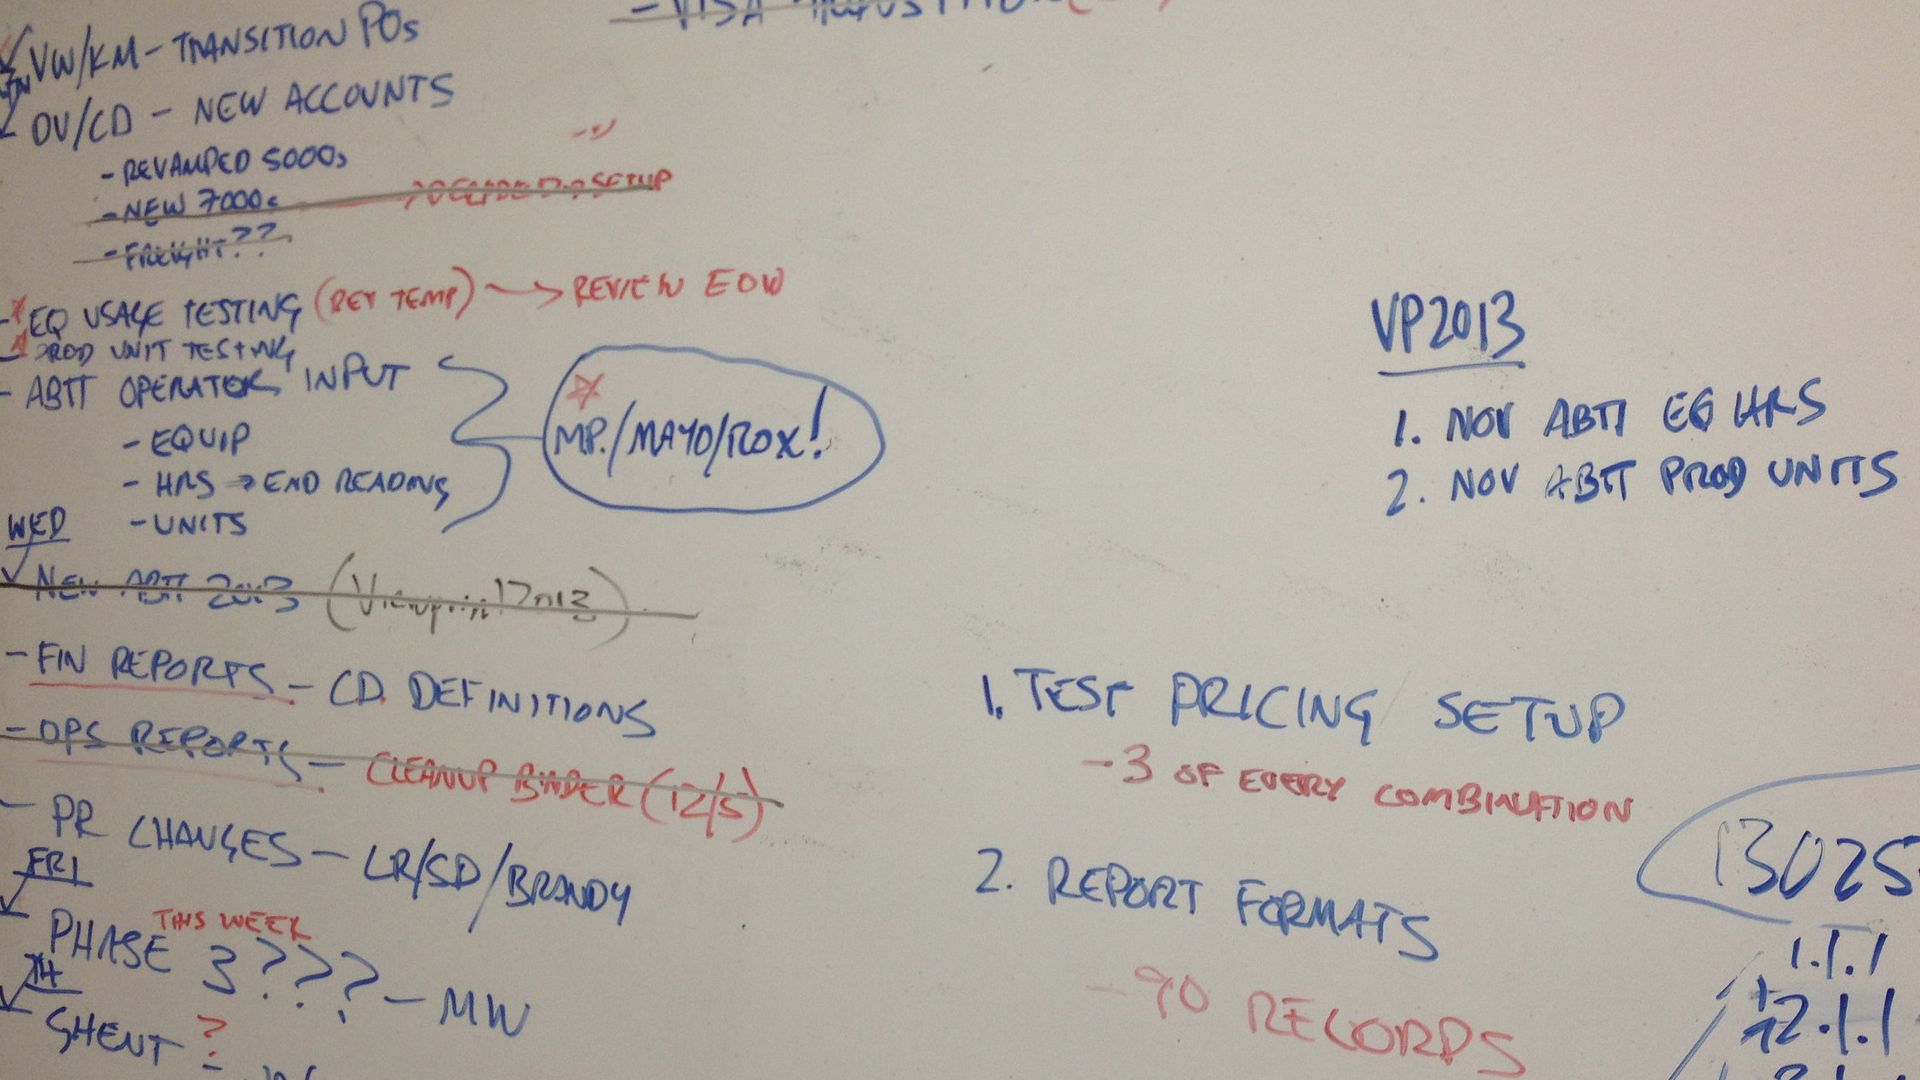 VW/KM - TRANSITION POs
DV/CD - NEW ACCOUNTS
- REVAMPED 5000s
- NEW 7000s SETUP
- FREIGHT??
- EQ USAGE TESTING (REV TEMP) → REVIEW EOW
PROD UNIT TESTING
- ABTI OPERATOR INPUT
- EQUIP
- HRS → END READING
- UNITS
MP./MAYO/ROX!
WED
NEW ABTI 2013 (Viewpoint 2013)
- FIN REPORTS - CD DEFINITIONS
- OPS REPORTS - CLEANUP BINDER (12/5)
- PR CHANGES - LR/SD/BRANDY
FRI
THIS WEEK
PHASE 3??? - MW
TH
SHENT ?
VP2013
1. NOV ABTI EQ HRS
2. NOV ABTI PROD UNITS
1. TEST PRICING SETUP
- 3 OF EVERY COMBINATION
2. REPORT FORMATS
- 90 RECORDS
13025
1.1.1
2.1.1